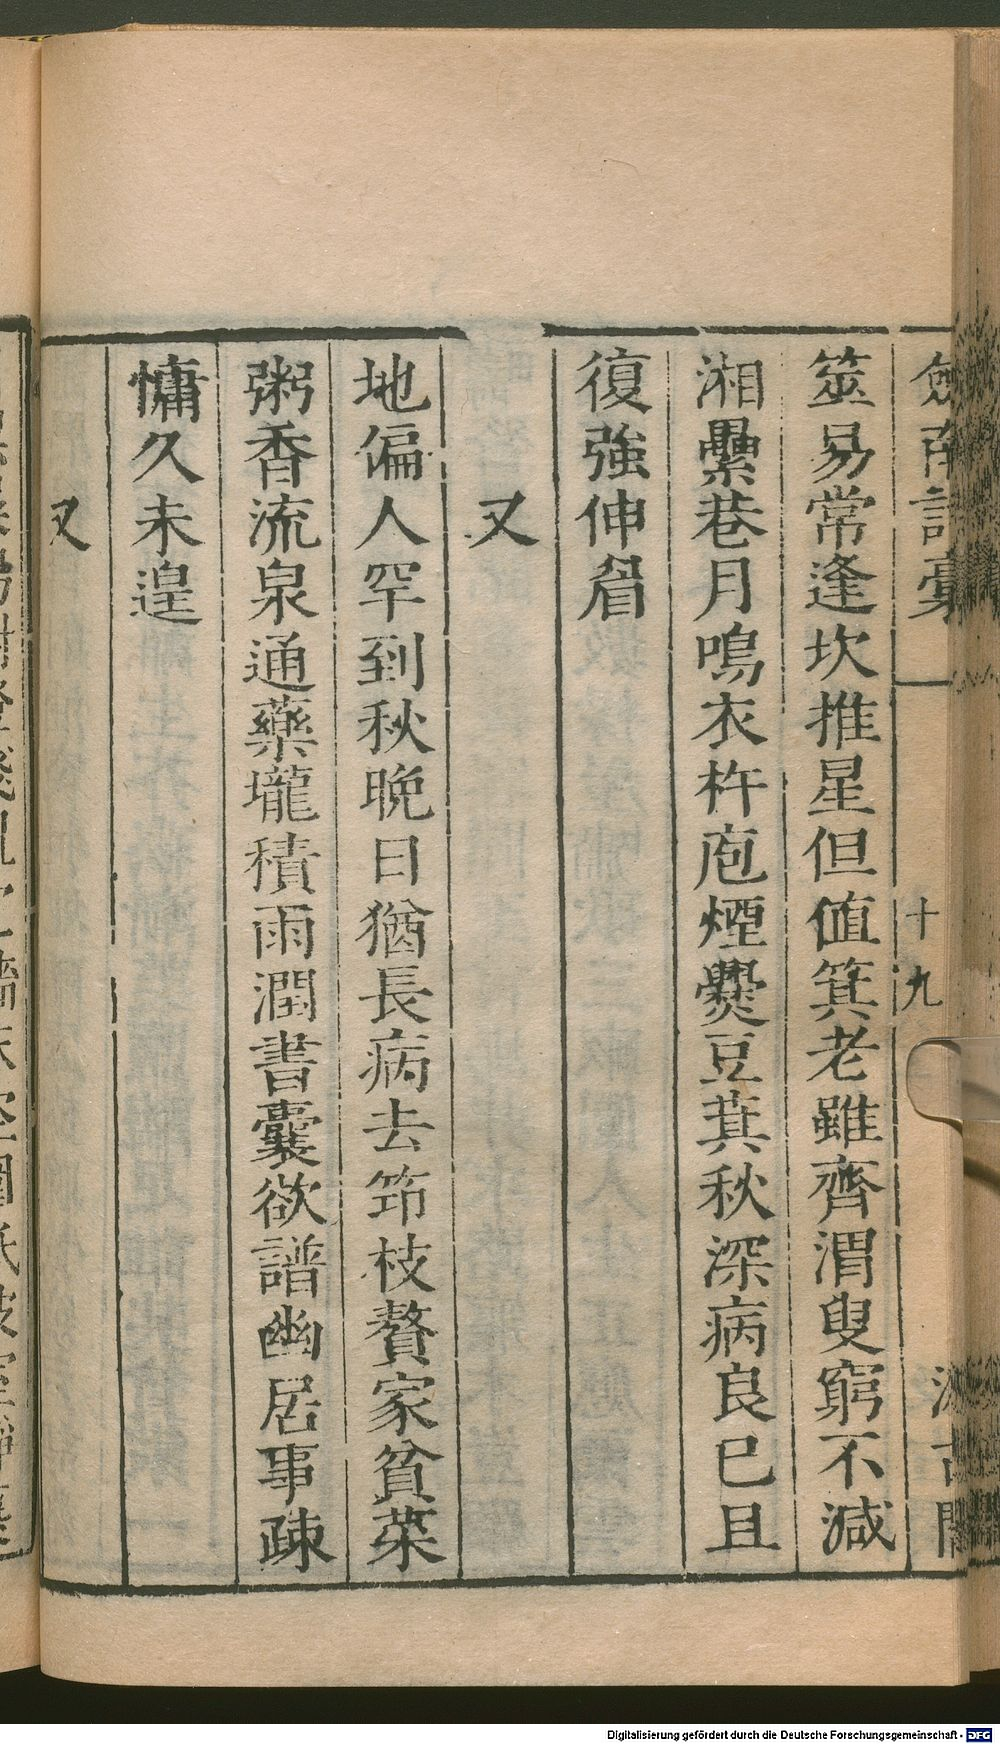 劍南詩稾
十九
汲古閣
筮易常逢坎推星但値箕老雖齊渭叟窮不減
湘纍巷月鳴衣杵庖煙爨豆萁秋深病良已且
復強伸眉
又
地偏人罕到秋晚日猶長病去笻枝贅家貧菜
粥香流泉通藥壠積雨潤書囊欲譜幽居事疎
慵久未遑
又
Digitalisierung gefördert durch die Deutsche Forschungsgemeinschaft - DFG